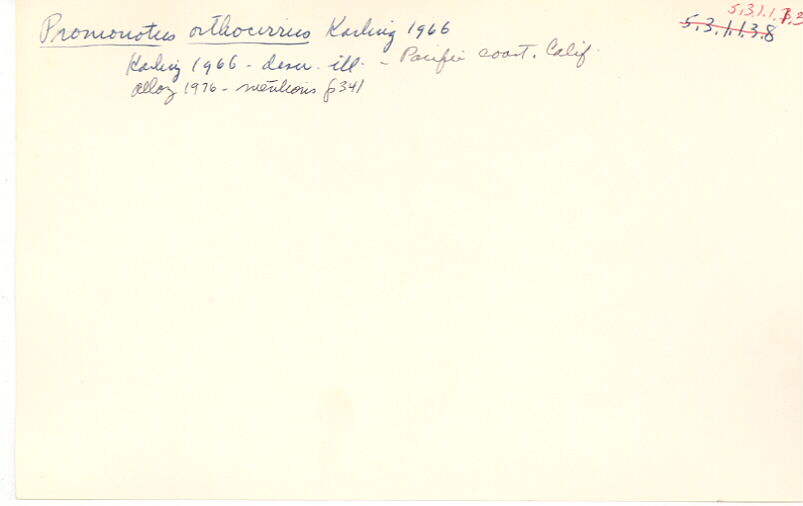 Promonotus orthocirrus Karling 1966
5.3.1.1.3.8
Karling 1966 - descr. ill. - Pacific coast. Calif.
Alloz 1976 - mentions p341